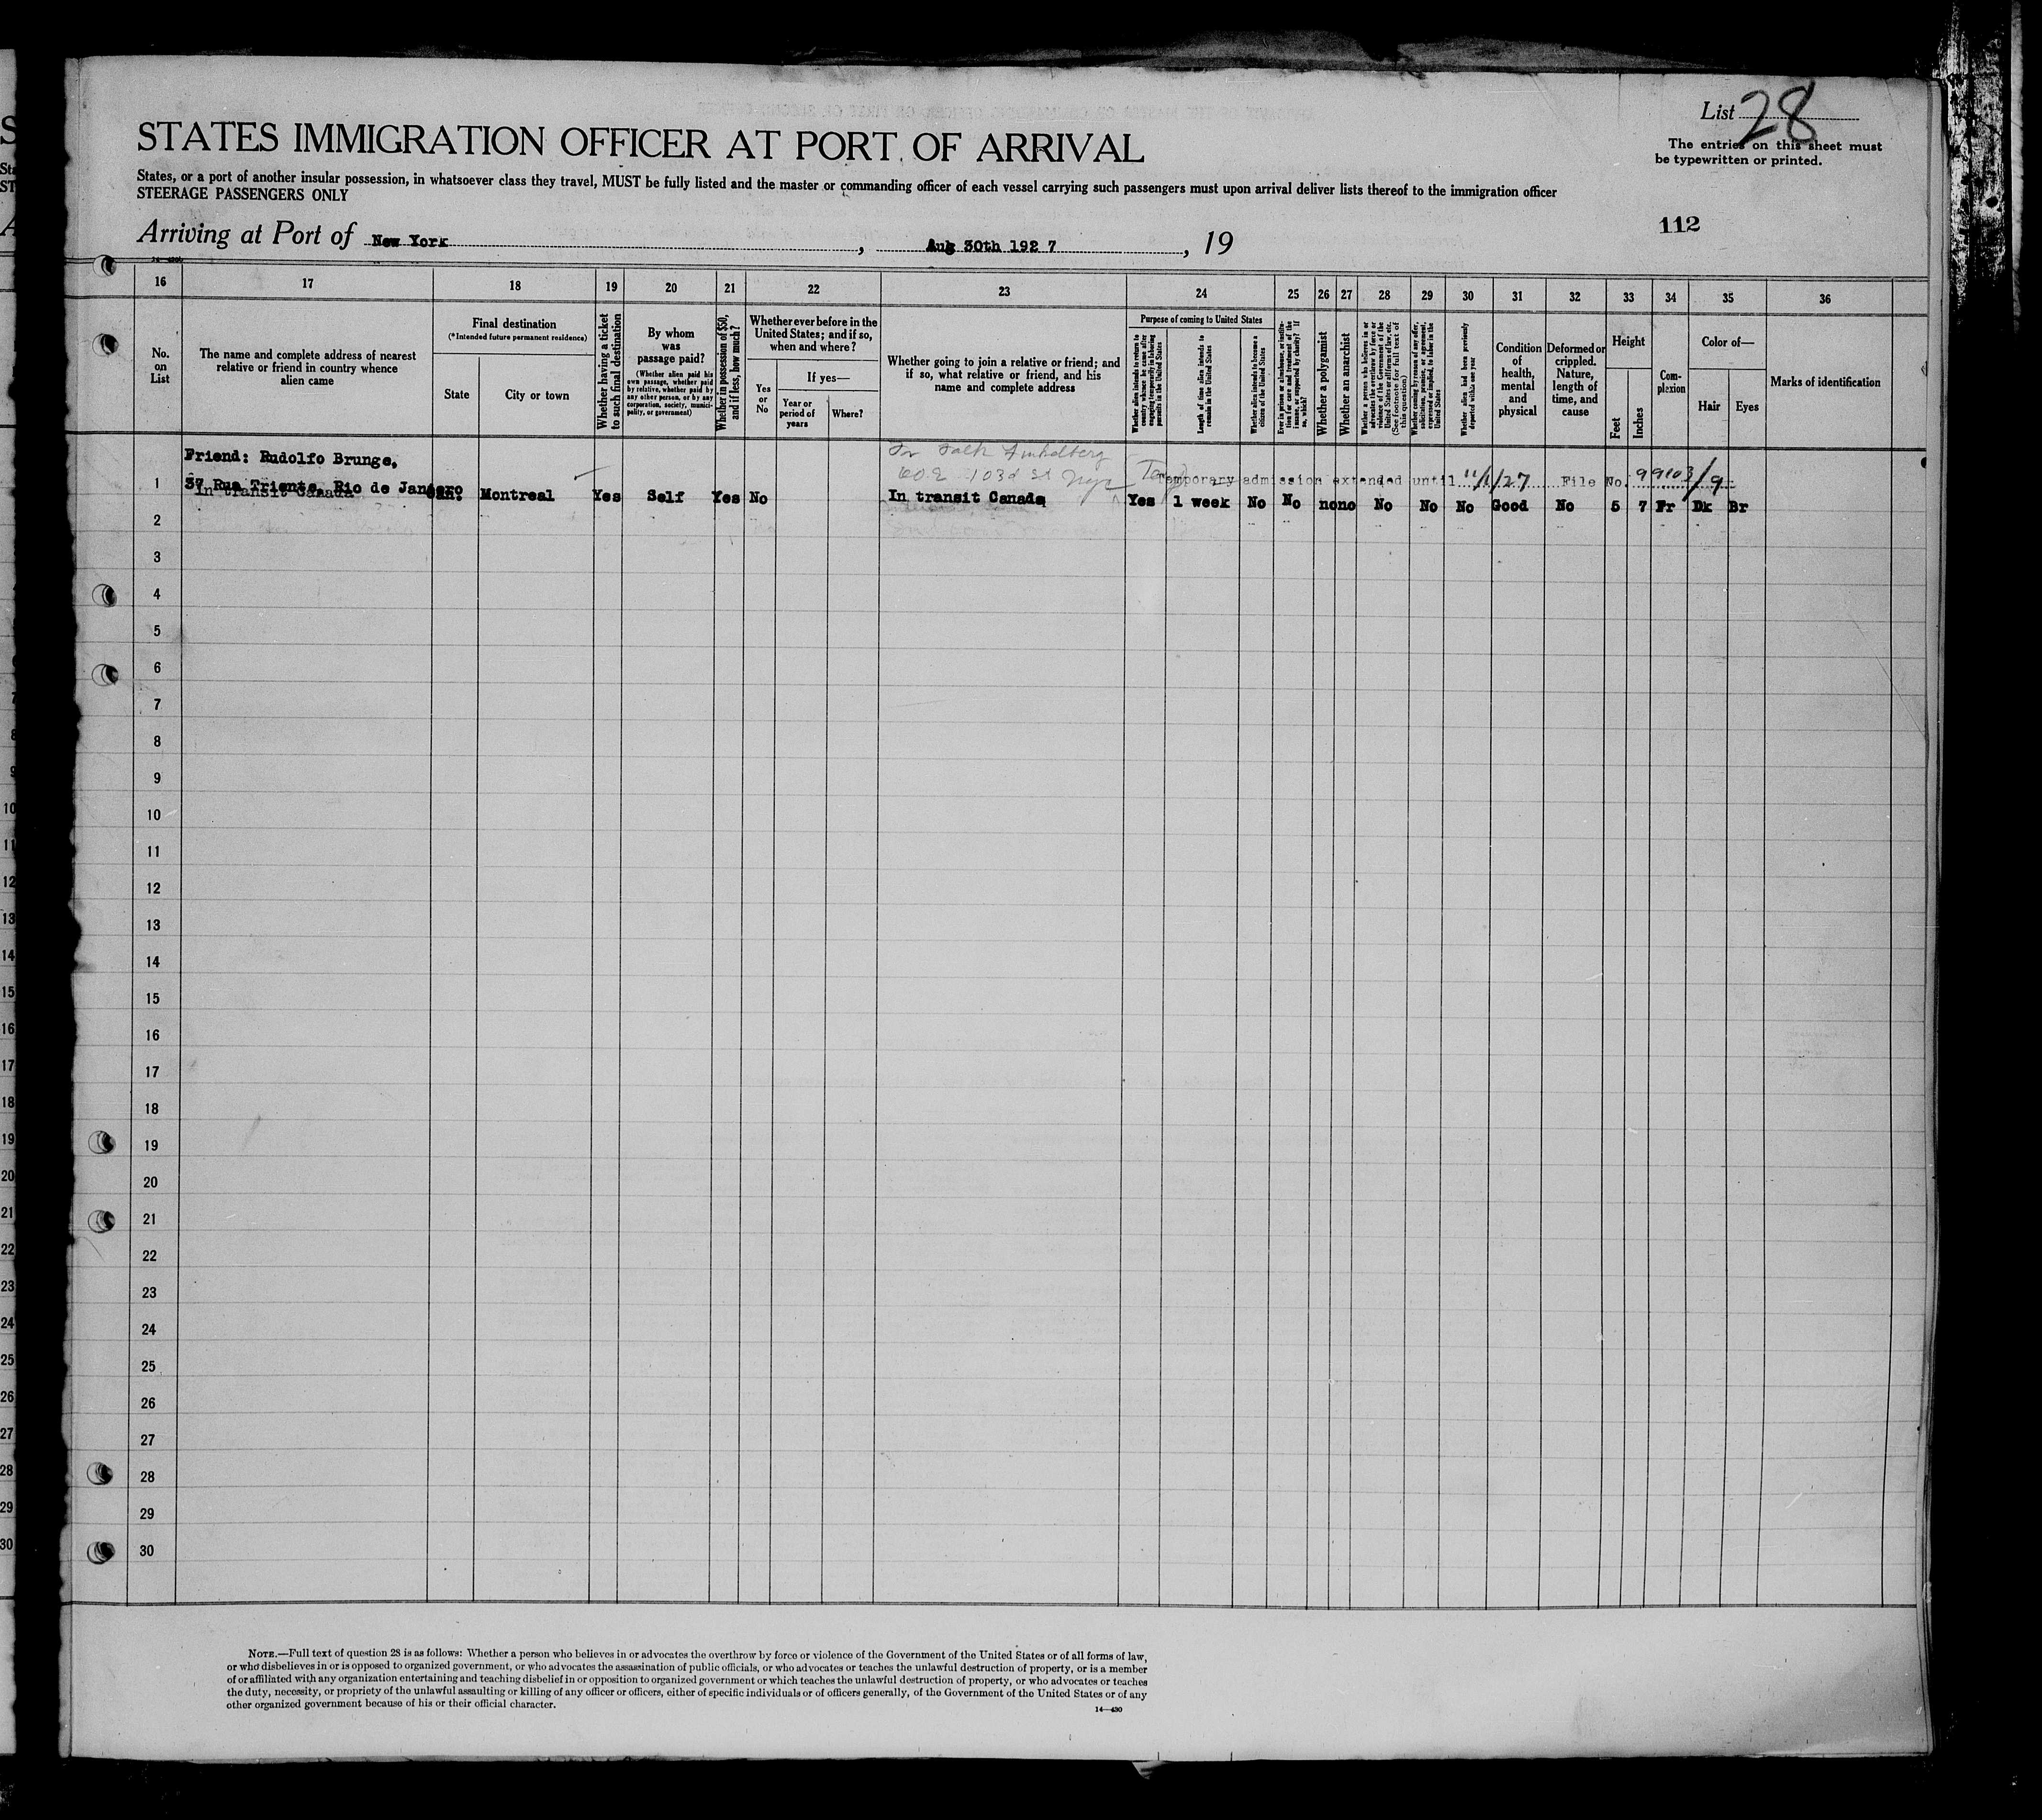 List 28
The entries on this sheet must
be typewritten or printed.
STATES IMMIGRATION OFFICER AT PORT OF ARRIVAL
States, or a port of another insular possession, in whatsoever class they travel, MUST be fully listed and the master or commanding officer of each vessel carrying such passengers must upon arrival deliver lists thereof to the immigration officer
STEERAGE PASSENGERS ONLY
112
Arriving at Port of New York, Aug 30th 192 7, 19
16 17 18 19 20 21 22 23 24 25 26 27 28 29 30 31 32 33 34 35 36
No.
on
List
The name and complete address of nearest
relative or friend in country whence
alien came
Final destination
(*Intended future permanent residence)
State
City or town
Whether having a ticket
to such final destination
By whom
was
passage paid?
(Whether alien paid his
own passage, whether paid
by relative, whether paid by
any other person, or by any
corporation, society, munici-
pality, or government)
Whether in possession of $50,
and if less, how much?
Whether ever before in the
United States; and if so,
when and where?
Yes
or
No
If yes—
Year or
period of
years
Where?
Whether going to join a relative or friend; and
if so, what relative or friend, and his
name and complete address
Purpose of coming to United States
Whether alien intends to return to
country whence he came after
engaging temporarily in laboring
pursuits in the United States
Length of time alien intends to
remain in the United States
Whether alien intends to become a
citizen of the United States
Ever in prison or almshouse, or institu-
tion for care and treatment of the
insane, or supported by charity? If
so, which?
Whether a polygamist
Whether an anarchist
Whether a person who believes in or
advocates the overthrow by force or
violence of the Government of the
United States or all forms of law, etc.
(See footnote for full text of
this question)
Whether coming by reason of any offer,
solicitation, promise, or agreement,
expressed or implied, to labor in the
United States
Whether alien had been previously
deported within one year
Condition
of
health,
mental
and
physical
Deformed or
crippled.
Nature,
length of
time, and
cause
Height
Feet
Inches
Com-
plexion
Color of—
Hair
Eyes
Marks of identification
Friend: Rudolfo Brunge,
103d St
37 Rua Triente, Rio de Janeiro
Temporary admission extended until 11/1/27 File No. 99103/9
1 In transit Canada Can. Montreal Yes Self Yes No In transit Canada Yes 1 week No No no no No No No Good No 5 7 Fr Dk Br
2
3
4
5
6
7
8
9
10
11
12
13
14
15
16
17
18
19
20
21
22
23
24
25
26
27
28
29
30
NOTE.—Full text of question 28 is as follows: Whether a person who believes in or advocates the overthrow by force or violence of the Government of the United States or of all forms of law,
or who disbelieves in or is opposed to organized government, or who advocates the assassination of public officials, or who advocates or teaches the unlawful destruction of property, or is a member
of or affiliated with any organization entertaining and teaching disbelief in or opposition to organized government or which teaches the unlawful destruction of property, or who advocates or teaches
the duty, necessity, or propriety of the unlawful assaulting or killing of any officer or officers, either of specific individuals or of officers generally, of the Government of the United States or of any
other organized government because of his or their official character.
14—430